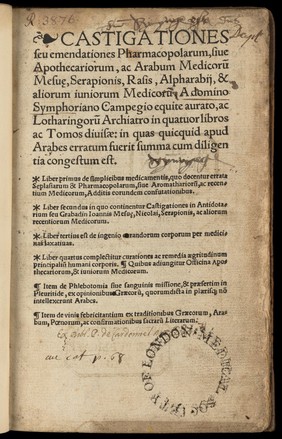 R. 3876
CASTIGATIONES
seu emendationes Pharmacopolarum, siue
Apothecariorum, ac Arabum Medicorū
Mesuę, Serapionis, Rasis, Alpharabij, &
aliorum iuniorum Medicorū, A domino
Symphoriano Campegio equite aurato, ac
Lotharingorū Archiatro in quatuor libros
ac Tomos diuisæ: in quas quicquid apud
Arabes erratum fuerit summa cum diligen
tia congestum est.
Liber primus de simplicibus medicamentis, quo docentur errata
Seplasiariorū & Pharmacopolarum, siue Aromathariorū, ac recen
tium Medicorum, Additis eorundem confutationibus.
Liber secundus in quo continentur Castigationes in Antidota
rium seu Grabadin Ioannis Mesuę, Nicolai, Serapionis, ac aliorum
recentiorum Medicorum.
Liber tertius est de ingenio curandorum corporum per medici
nas laxatiuas.
Liber quartus complectitur curationes ac remedia ægritudinum
principaliū humani corporis. ¶ Quibus adiungitur Officina Apo
thecariorum, & iuniorum Medicorum.
¶ Item de Phlebotomia siue sanguinis missione, & præsertim in
Pleuritide, ex opinionibus Græcorū, quorum dicta in plærisq; nō
intellexerunt Arabes.
¶ Item de vinis febricitantium ex traditionibus Græcorum, Ara
bum, Pœnorum, ac confirmationibus sacrarū Literarum:
au cat p. 68
SOCIETY OF LONDON. MEDICAL